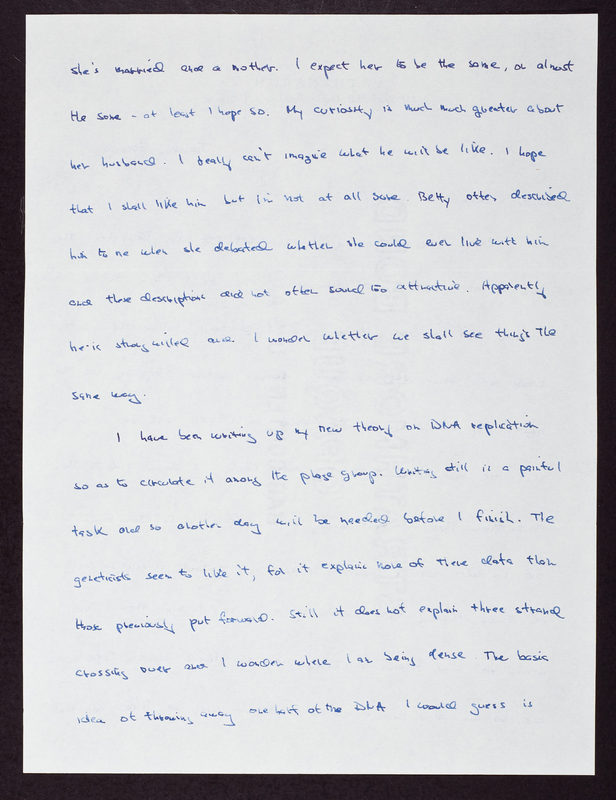 she's married and a mother. I expect her to be the same, or almost
the same - at least I hope so. My curiosity is much much greater about
her husband. I really can't imagine what he will be like. I hope
that I shall like him but I'm not at all sure. Betty often described
him to me when she debated whether she could ever live with him
and these descriptions did not often sound too attractive. Apparently
he is strong willed and I wonder whether we shall see things the
same way.
I have been writing up my new theory on DNA replication
so as to circulate it among the phage group. Writing still is a painful
task and so another day will be needed before I finish. The
geneticists seem to like it, for it explains more of there data than
those previously put forward. Still it does not explain three strand
crossing over and I wonder where I am being dense. The basic
idea of throwing away one half of the DNA I would guess is